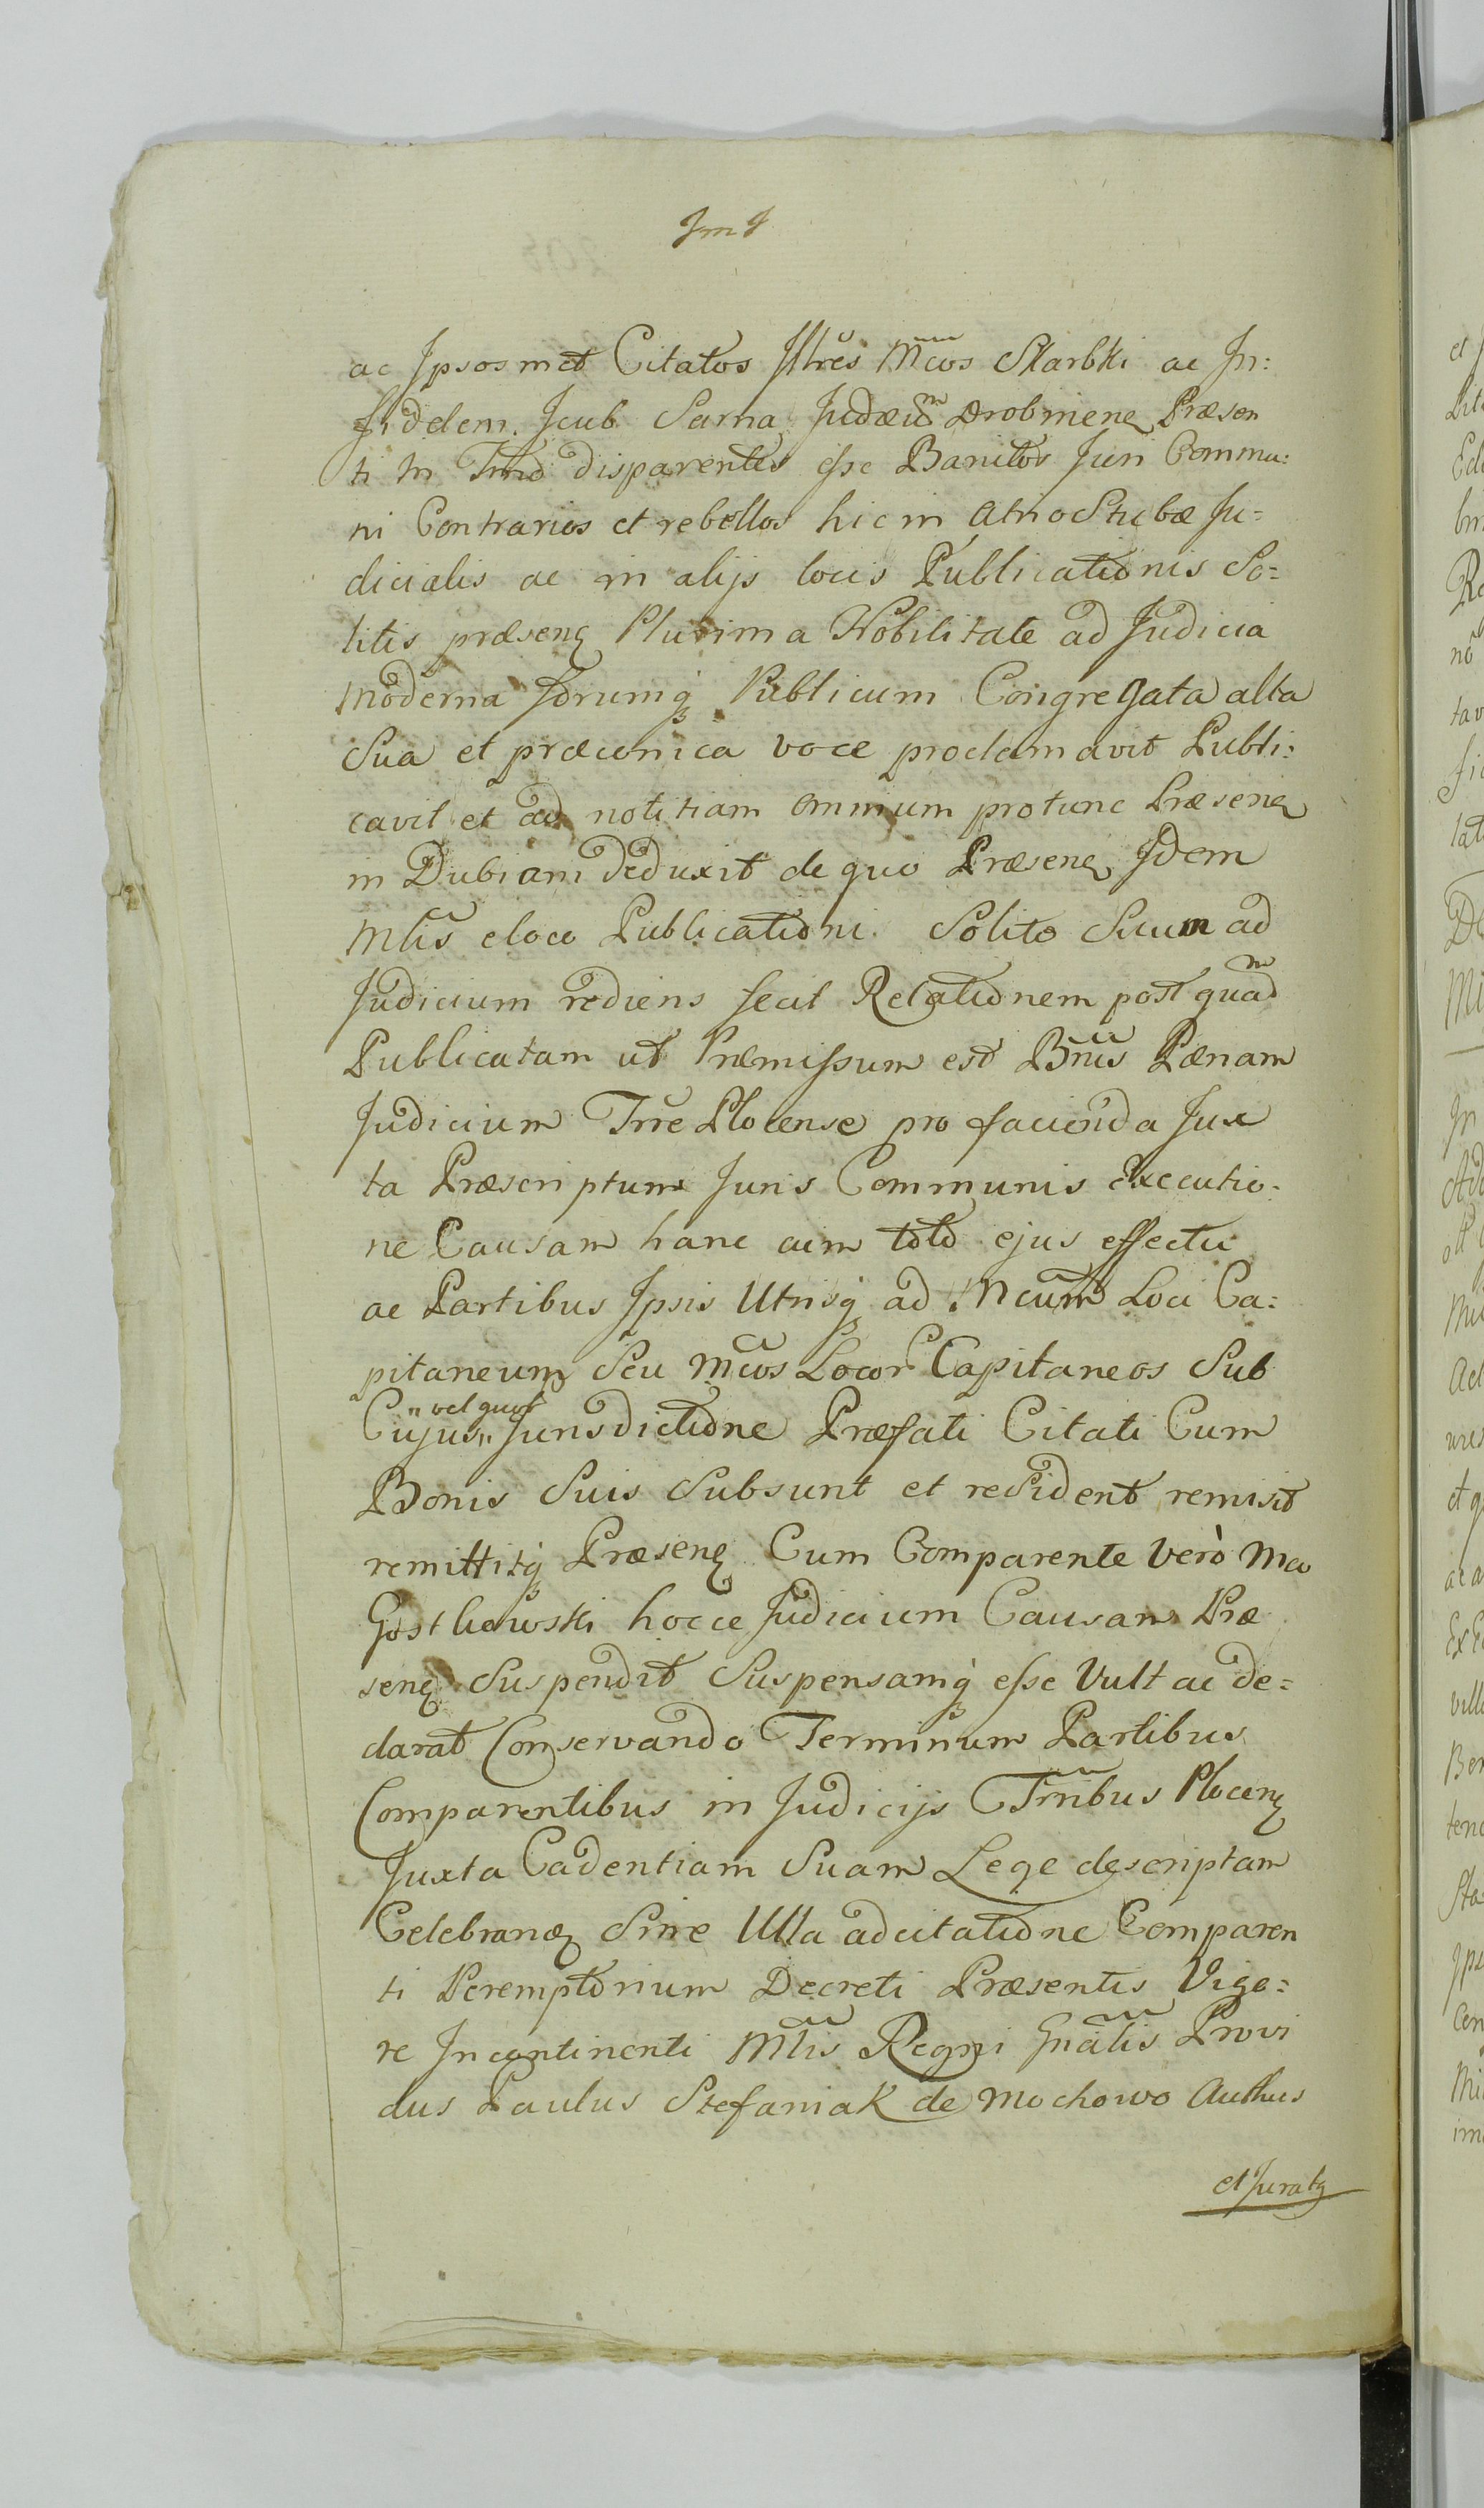 ac Ipsosmet Citatos Illres Mcos Skarbki ac In:
fidelem Icub Sarna Judæum Drobinenȩ Præsen
ti in Tmo disparentes esse Banitos Juri Commu:
ni Contrarios et rebellos hic in Atrio Stubæ Ju=
dicialis ac in alijs locis Publicationis So=
litis præsenȩ Plurima Nobilitate ad Judicia
moderna forumq Publicum Congregata alta
Sua et præconica voce proclamavit Publi:
cavit et ad notitiam omnium protunc Præsenȩ
in Dubiam deduxit de quo Præsenȩ Idem
Mlis eloco Publicationi Solito Suum ad
Judicium rediens fecit Relationem post quam
Publicatam ut Præmissum est Bnis Pænam
Judicium Trre Plocense pro facienda Jux
ta Præscriptum Juris Communis executio=
ne Causam hanc cum toto ejus effectu
ac Partibus Ipsis Utrisq ad Mcum Loci Ca:
pitaneum Seu Mcos Locor Capitaneos Sub
Cujus " vel quor " Jurisdictione Præfati Citati Cum
Bonis Suis Subsunt et resident remisit
remittitq Præsenȩ Cum Comparente Verò Mco
Gostkowski hocce Judicium Causam Præ
senȩ Suspendit Suspensamq esse Vult ac de=
clarat Conservando Terminum Partibus
Comparentibus in Judicijs Trribus Plocenȩ
Juxta Cadentiam Suam Lege descriptam
Celebranȩ Sine Ulla adcitatione Comparen
ti Peremptorium Decreti Præsentis Vigo=
re Incontinenti Mlis Regni Gnalis Provi
dus Paulus Stefaniak de Mochowo Authus
et Juratȩ